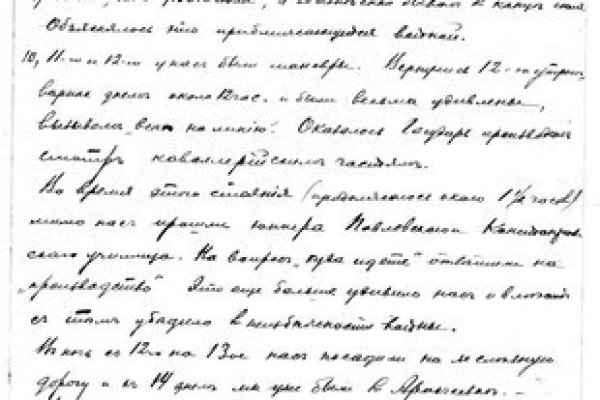 Объяснялось это приближающейся войной.
10, 11-го и 12-го у нас были маневры. Вернулись 12-го утром,
вернее днем около 12 час. и были весьма удивлены,
вызовом „всех на линию". Оказалось Государь производит
смотръ кавалерийским частям.
Во время этого стояния (продолжалось около 1½ часов)
мимо нас прошли юнкера Павловского
училища. На вопрос „куда идете" ответили на
„производство" Это еще больше удивило нас и
с тем убедило в неизбежности войны.
В ночь с 12го на 13ое нас посадили на железную
дорогу и 14 днем мы уже были в